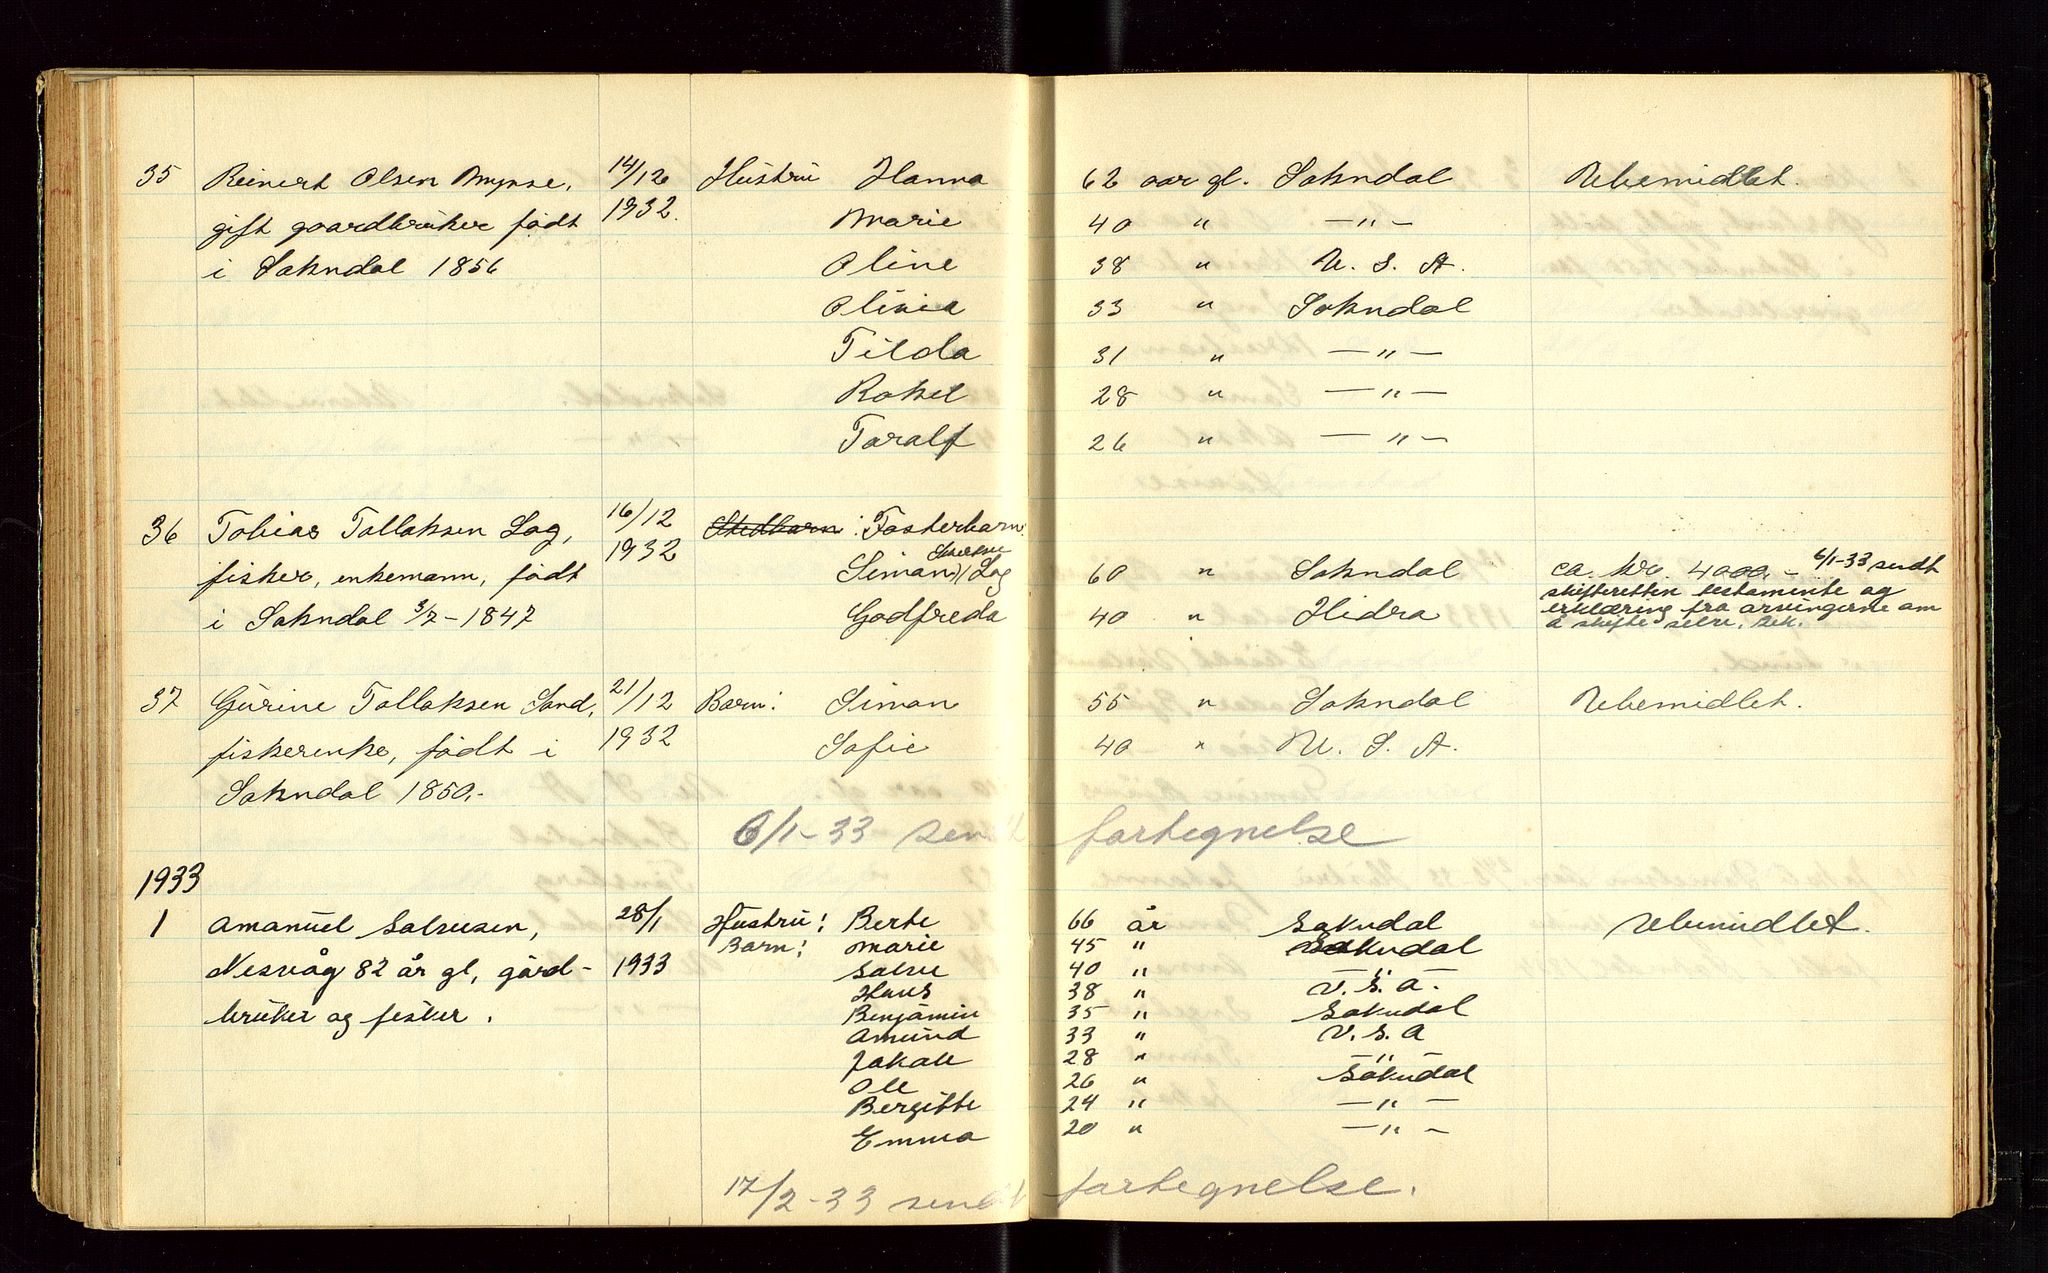 35 Reinert Olsen Mysse, 14/12 Hustru Hanna 62 aar gl. Sokndal Ubemidlet.
gift gaardbruker født 1932. Marie 40 " —"—
i Sokndal 1856 Oline 38 " U. S. A.
Olivia 33 " Sokndal
Tilda 31 " —"—
Rakel 28 " —"—
Toralf 26 " —"—
36 Tobias Tollaksen Log, 16/12 Stedbarn : Fosterbarn:
fisker, enkemann, født 1932 Simon Log 60 " Sokndal ca. kr. 4000,- 6/1-33 sendt
skifteretten testaminte og
i Sokndal 3/7-1847 Godfreda 40 " Hidra erklæring fra arvingerne om
å skifte selv.
37 Gurine Tollaksen Sand, 21/12 Barn: Simon 55 " Sokndal Ubemidlet.
fiskerenke, født i 1932 Sofie 40 " U. S. A.
Sokndal 1850.-
6/1-33 sendt fortegnelse
1933
1 Amanuel Salvesen, 28/1 Hustru: Berte 66 år Sokndal ubemidlet.
Barn: Marie 45 " Sokndal
Nesvåg 82 år gl, gård- 1933 Salve 40 " —"—
Hans 38 " U.S.A.
bruker og fisker. Benjamin 35 " Sokndal
Amund 33 " U.S.A
Jakob 28 " —"—
Ole 26 " Sokndal
Bergitte 24 " —"—
Emma 20 " —"—
17/2-33 sendt fortegnelse.